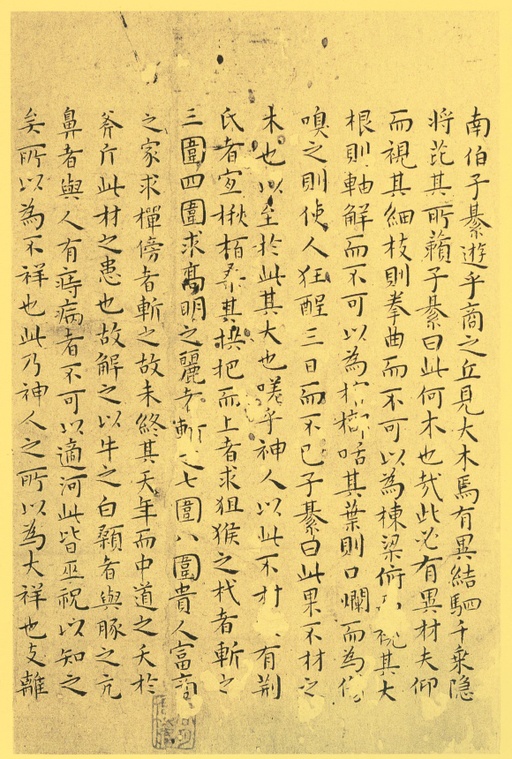 南伯子綦遊乎商之丘見大木焉有異結駟千乘隱
將芘其所籟子綦曰此何木也哉此必有異材夫仰
而視其細枝則拳曲而不可以為棟梁俯 視其大
根則軸解而不可以為棺槨咶其葉則口爛而為傷
嗅之則使人狂酲三日而不已子綦曰此果不材之
木也以至於此其大也嗟乎神人以此不材 有荊
氏者宜楸栢桑其拱把而上者求狙猴之杙者斬之
三圍四圍求高明之麗者斬之七圍八圍貴人富商
之家求樿傍者斬之故未終其天年而中道之夭於
斧斤此材之患也故解之以牛之白顙者與豚之亢
鼻者與人有痔病者不可以適河此皆巫祝以知之
矣所以為不祥也此乃神人之所以為大祥也支離